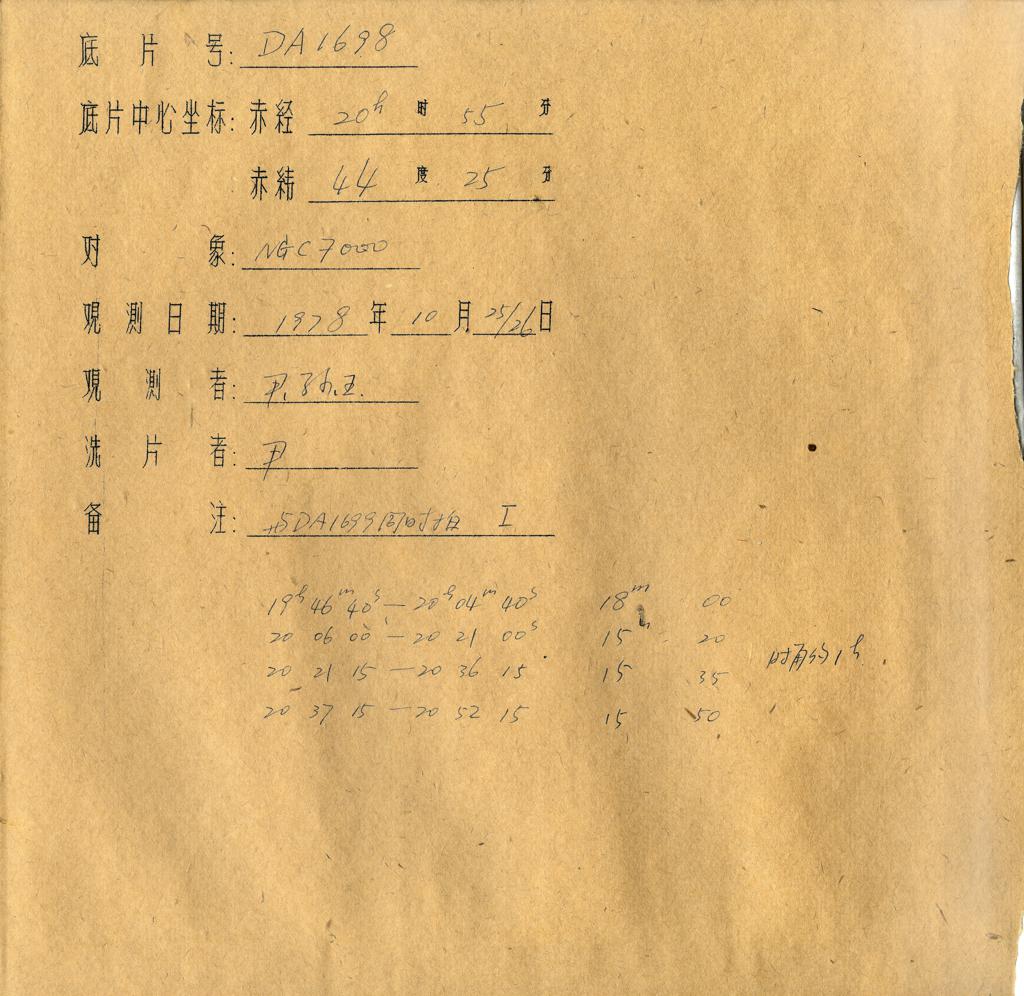 底片号: DA1698
底片中心坐标: 赤经 20h 时 55 分
赤纬 44 度 25 分
对象: NGC7000
观测日期: 1978年10月25/26日
观测者: 尹、孙、王.
洗片者: 尹
备注: 与DA1699同时拍 I
19h 46m 40s — 20h 04m 40s 18m 00
20 06 00 — 20 21 00s 15 20
20 21 15 — 20 36 15 15 35
时角约1h.
20 37 15 — 20 52 15 15 50